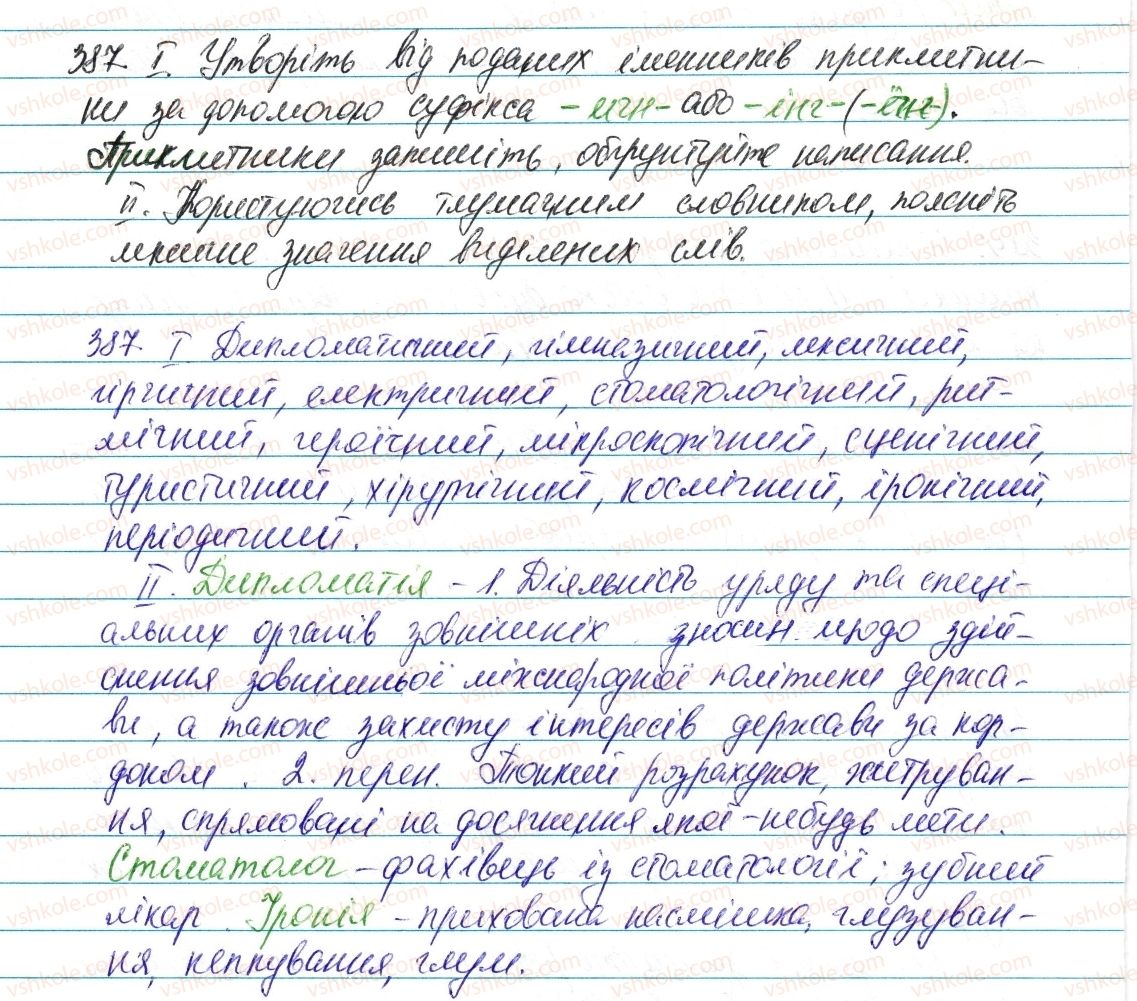 387. I. Утворіть від поданих іменників прикметни-
ки за допомогою суфікса -ичн- або -ічн- (-їчн-).
Прикметники запишіть, обґрунтуйте написання.
II. Користуючись тлумачним словником, поясніть
лексичне значення виділених слів.
387. I Дипломатичний, гімназичний, лексичний,
ліричний, електричний, стоматологічний, рит-
мічний, героїчний, мікроскопічний, сценічний,
туристичний, хірургічний, космічний, іронічний,
періодичний.
II. Дипломатія - 1. Діяльність уряду та спеці-
альних органів зовнішніх зносин щодо здій-
снення зовнішньої міжнародної політики держа-
ви, а також захисту інтересів держави за кор-
доном. 2. перен. Тонкий розрахунок, хитруван-
ня, спрямовані на досягнення якої-небудь мети.
Стоматолог - фахівець із стоматології; зубний
лікар. Іронія - прихована насмішка, глузуван-
ня, кепкування, глум.